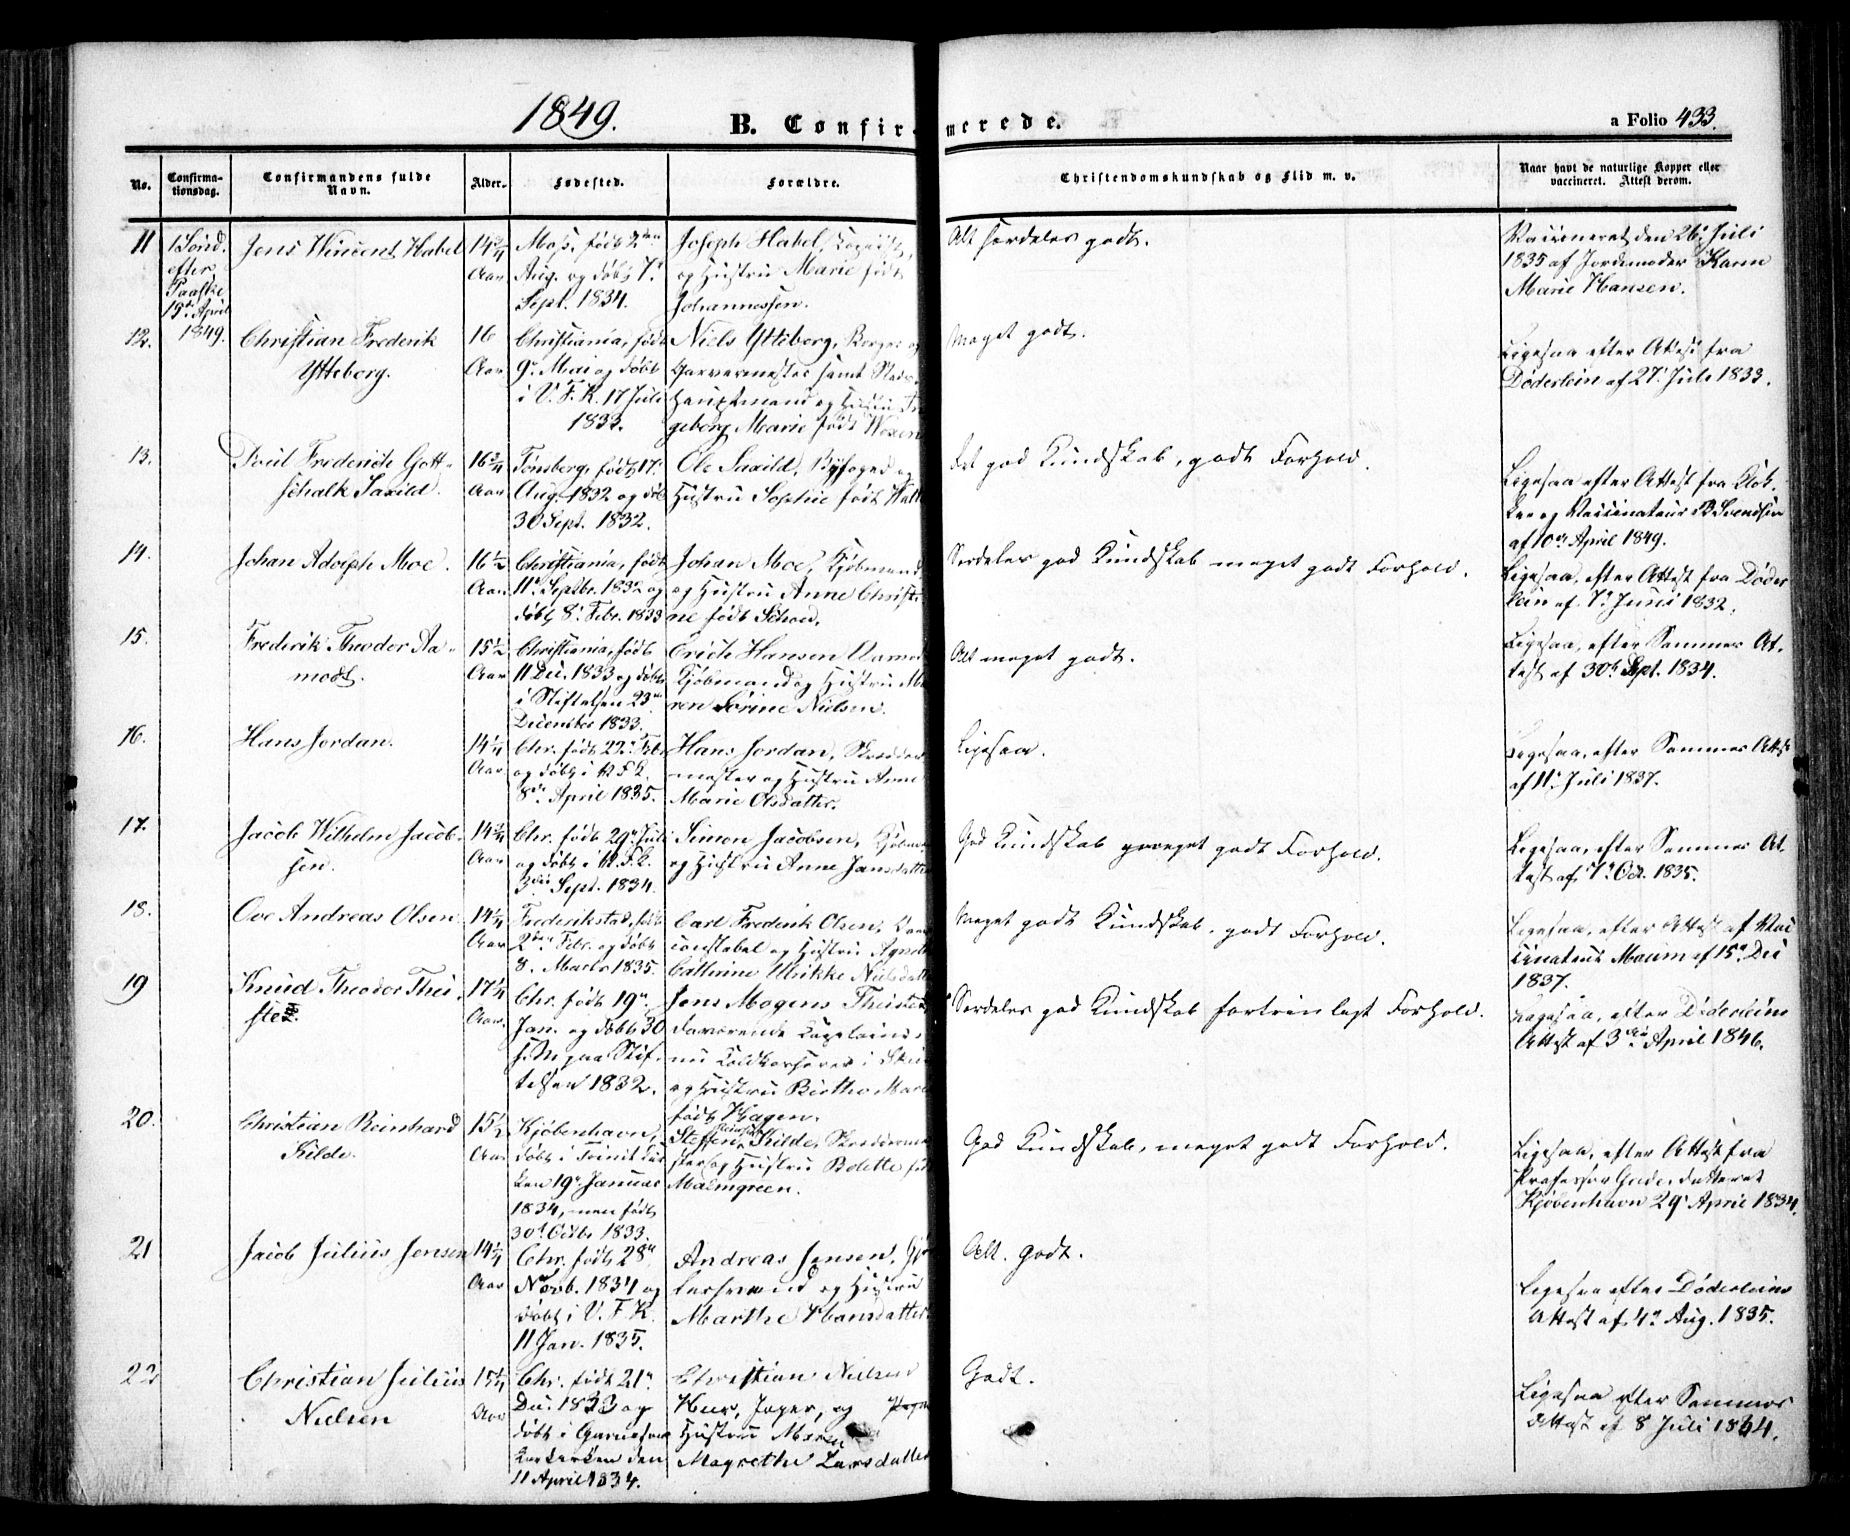 1849.
B. Confirmerede.
a Folio 433.
No.
Confirma-
tionsdag.
Confirmandens fulde
Navn.
Alder.
Fødested.
Forældre.
Christendomskundskab og Flid m. v.
Naar havt de naturlige Kopper eller
vaccineret. Attest derom.
11
1 Sønd.
efter
Paaske
15de April
1849.
Jens Wincent Habel
14 3/4
Aar
Moss, født 2den
Aug. og døbt 7de
Sept. 1834.
Joseph Habel,
og Hustru Marie født
Johannessen.
Alt særdeles godt.
Vaccineret den 26de Juli
1835 af Jordemoder Karen
Marie Hansen.
12.
Christian Frederik
Ytteborg.
16
Aar
Christiania, født
9de Mai og døbt
i V. F. K. 17 Juli
1833.
Niels Ytteborg, Borger og
Garvermester samt Stads-
hauptmand og Hustru In
geborg Marie født
Meget godt.
Ligesaa efter Attest fra
Døderlein af 27de Juli 1833.
13.
Poul Frederich Gott-
schalk Saxild.
16 3/4
Aar
Tønsberg, født 17de
Aug. 1832 og døbt
30 Sept. 1832.
Ole Saxild, Byfoged og
Hustru Sophie født
Ret god Kundskab, godt Forhold.
Ligesaa efter Attest fra Klok-
ker og Vaccinateur B Svendsen
af 10de April 1849.
14.
Johan Adolph Moe.
16 1/2
Aar
Christiania, født
11de Septbr. 1832 og
døbt 8de Febr. 1833
Johan Moe, Kjøbmand
og Hustru Anne Christi
ne født Schou.
Særdeles god Kundskab meget godt Forhold.
Ligesaa, efter Attest fra Døder
lein af 7de Juni 1832.
15.
Frederik Theodor Aa-
modt.
15 1/2
Aar
Christiania, født
11 Dec. 1833 og døbt
i Stiftelsen 23de
December 1833.
Erich Hansen Aamodt
Kjøbmand og Hustru Ma
ren Sørine Nielsen.
Alt meget godt.
Ligesaa, efter Sammes At-
test af 30te Sept. 1834.
16.
Hans Jordan.
14 1/4
Aar
Chr. født 22de Feb
og døbt i V. F. K.
8de April 1835.
Hans Jordan, Skrædder
mester og Hustru Anne
Marie Olsdatter.
Ligesaa.
Ligesaa, efter Sammes Attest
af 11te Juli 1837.
17.
Jacob Wilhelm Jacob-
sen.
14 3/4
Aar
Chr. født 29de Juli
og døbt i V. F. K.
3die Sept. 1834.
Simon Jacobsen,
og Hustru Anne Jansdatter
God Kundskab meget godt Forhold.
Ligesaa, efter Sammes At-
test af 7de Oct. 1835.
18.
Ove Andreas Olsen
14 1/4
Aar
Frederikstad, født
2den Febr. og døbt
8. Marts 1835.
Carl Frederik Olsen,
constabel og Hustru Agnethe
Cathrine Ulrikke Nielsdatter
Meget godt Kundskab, godt Forhold.
Ligesaa, efter Attest af Vac
cinateur Maum af 15de Dec
1837.
19
Knud Theodor Theis-
ste.
17 1/4
Aar.
Chr. født 19de
Jan. og døbt 30
s. M. paa Stif-
telsen 1832.
Jens Mogens Theiste
forværende
nu
og Hustru Birthe Marie
født Hagen.
Særdeles god Kundskab fortrinligt Forhold.
Ligesaa, efter Døderleins
Attest af 3die April 1846.
20.
Christian Reinhard
Kilde.
15 1/2
Aar
Kjøbenhavn,
døbt i Trinit. Kir
ken 19de Januar
1834, men født
30te Octbr 1833.
Steffen Kilde, Skrædderme
ster og Hustru Bolette født
Malmgreen.
God Kundskab, meget godt Forhold.
Ligesaa, efter Attest fra
Professor Gade, dateret
Kjøbenhavn 29de April 1834.
21
Jacob Julius Jensen
14 1/4
Aar
Chr. født 28de
Novb. 1834 og
døbt i V. F. K.
11 Jan. 1835.
Andreas Jensen,
og Hustru
Marthe Hansdatter.
Alt godt.
Ligesaa efter Døderleins
Attest af 4de Aug. 1835.
22
Christian Julius
Nielsen
15 1/4
Aar
Chr. født 21de
Dec. 1833 og
døbt i Garnisons
kirken den
11 April 1834.
Christian Nielsen
Hustru Maren
Magrethe Larsdatter
Godt.
Ligesaa efter Sammes
Attest af 8 Juli 1834.